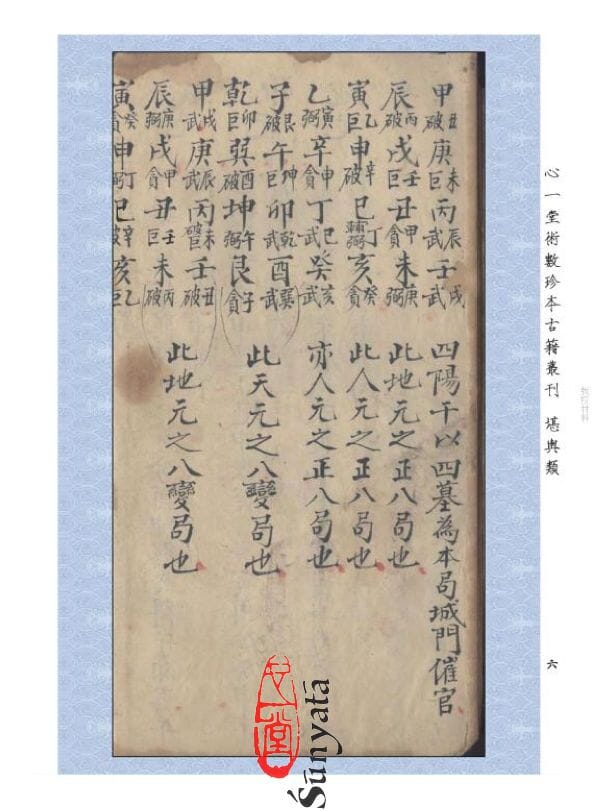 心一堂術數珍本古籍叢刊 堪輿類
六
甲丑破庚未巨丙辰武壬戌武 四陽干以四墓為本局城門催官
辰丙破戌壬巨丑甲貪未庚弼 此地元之正八局也
寅乙巨申辛破巳丁弼亥癸貪 此人元之正八局也
乙寅弼辛申貪丁巳武癸亥武 亦人元之正八局也
子艮破午坤巨卯乾武酉巽武
乾卯巨巽酉破坤午弼艮子貪 此天元之八變局也
甲戌武庚辰武丙未壬丑破
辰庚弼戌甲貪丑壬巨未丙破 此地元之八變局也
寅癸貪申丁弼巳辛破亥乙巨
心一堂
Śūnyatā